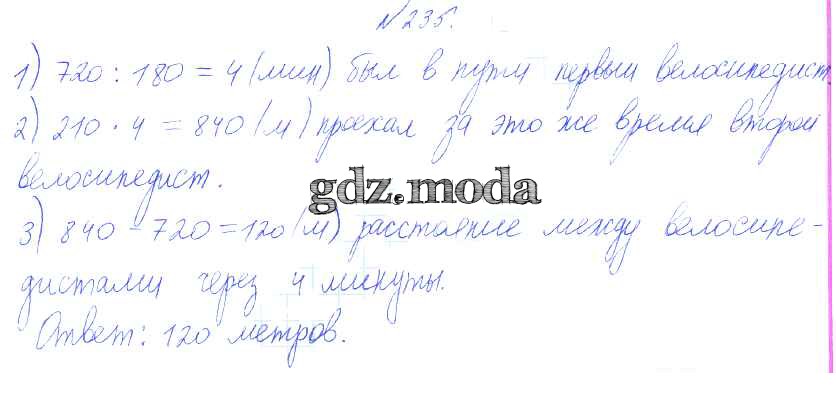 №235.
1) 720 : 180 = 4 (мин) был в пути первый велосипедист.
2) 210 · 4 = 840 (м) проехал за это же время второй
велосипедист.
gdz.moda
3) 840 - 720 = 120 (м) расстояние между велосипе-
дистами через 4 минуты.
Ответ: 120 метров.